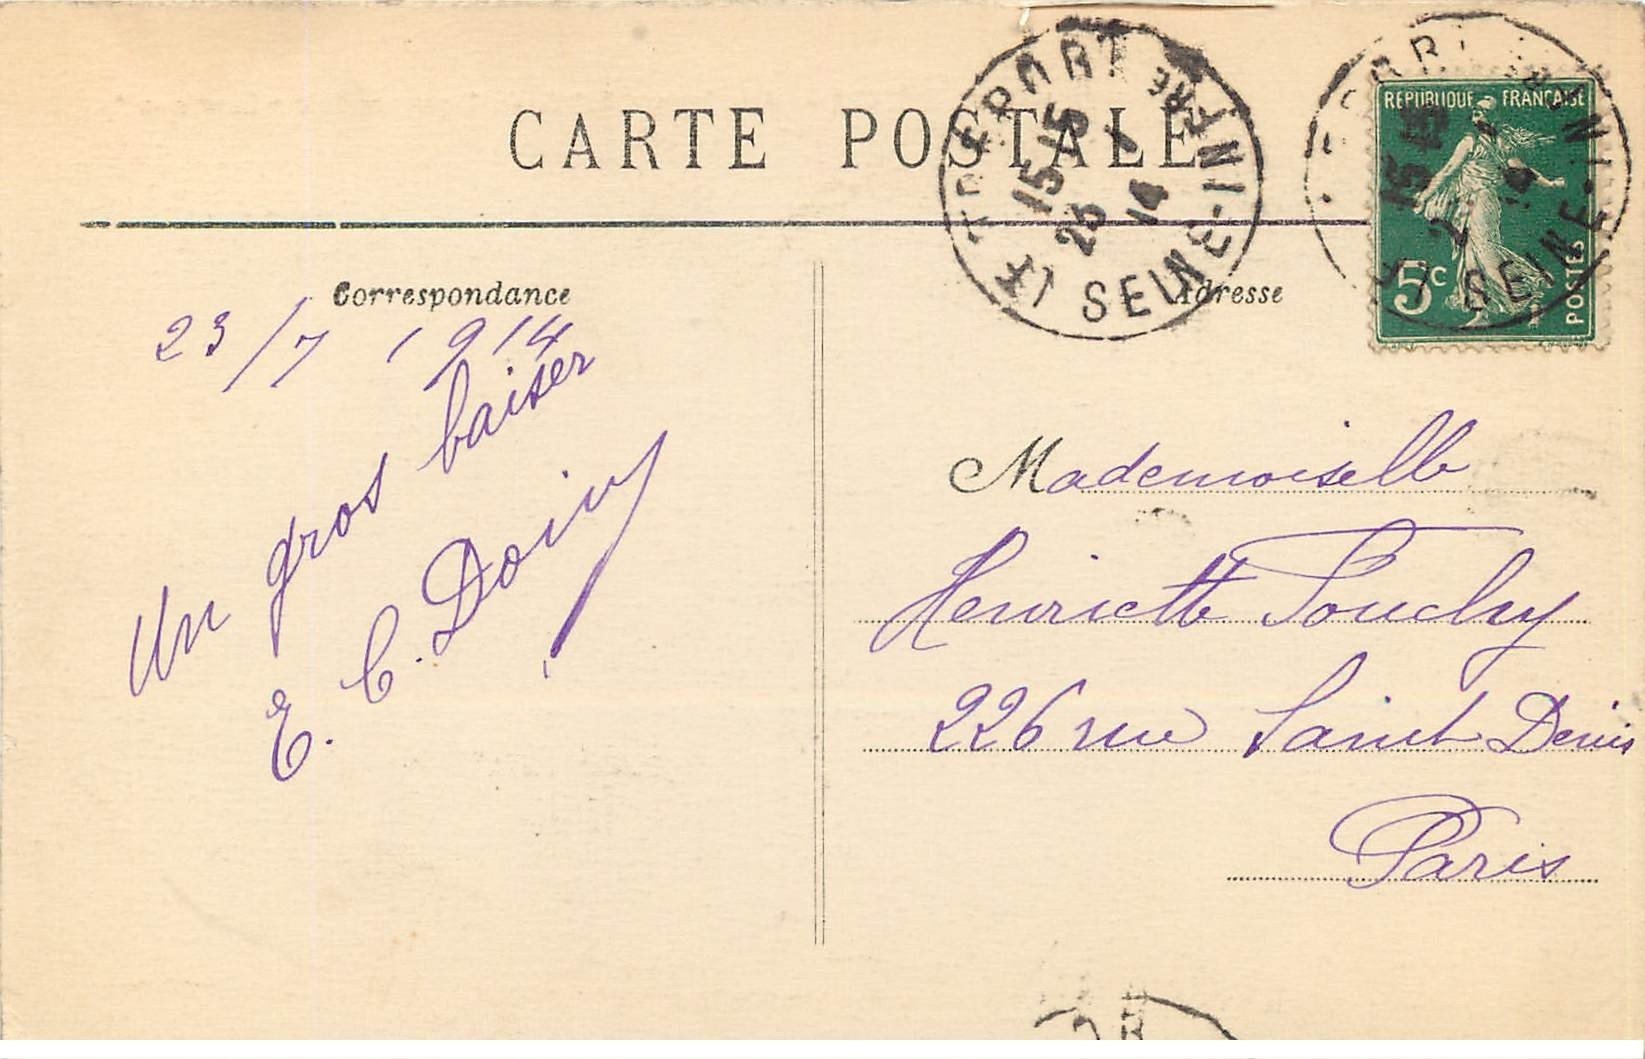 CARTE POSTALE
LE TREPORT
15 15
23 7
14
SEINE-INFRE
RÉPUBLIQUE FRANÇAISE
5c
POSTES
Correspondance
Adresse
23/7 1914
Un gros baiser
E. C. Doin
Mademoiselle
Henriette Souchy
226 rue Saint Denis
Paris